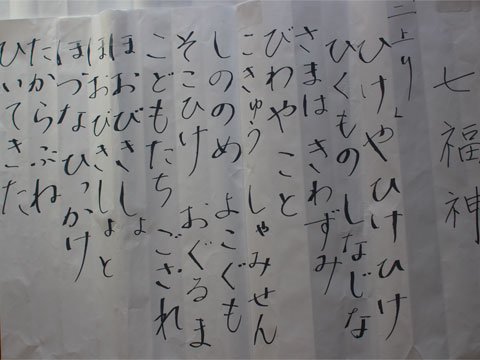 七福神
二上り
ひけやひけひけ
ひくもの しなじな
さまは きわずみ
びわや こと
こきゅう しゃみせん
しののめ よこぐも
そこひけ おぐるま
こどもたち ござれ
ほおびきしょ
ほおびきしょと
ほづな ひっかけ
たからぶね
ひいてきた